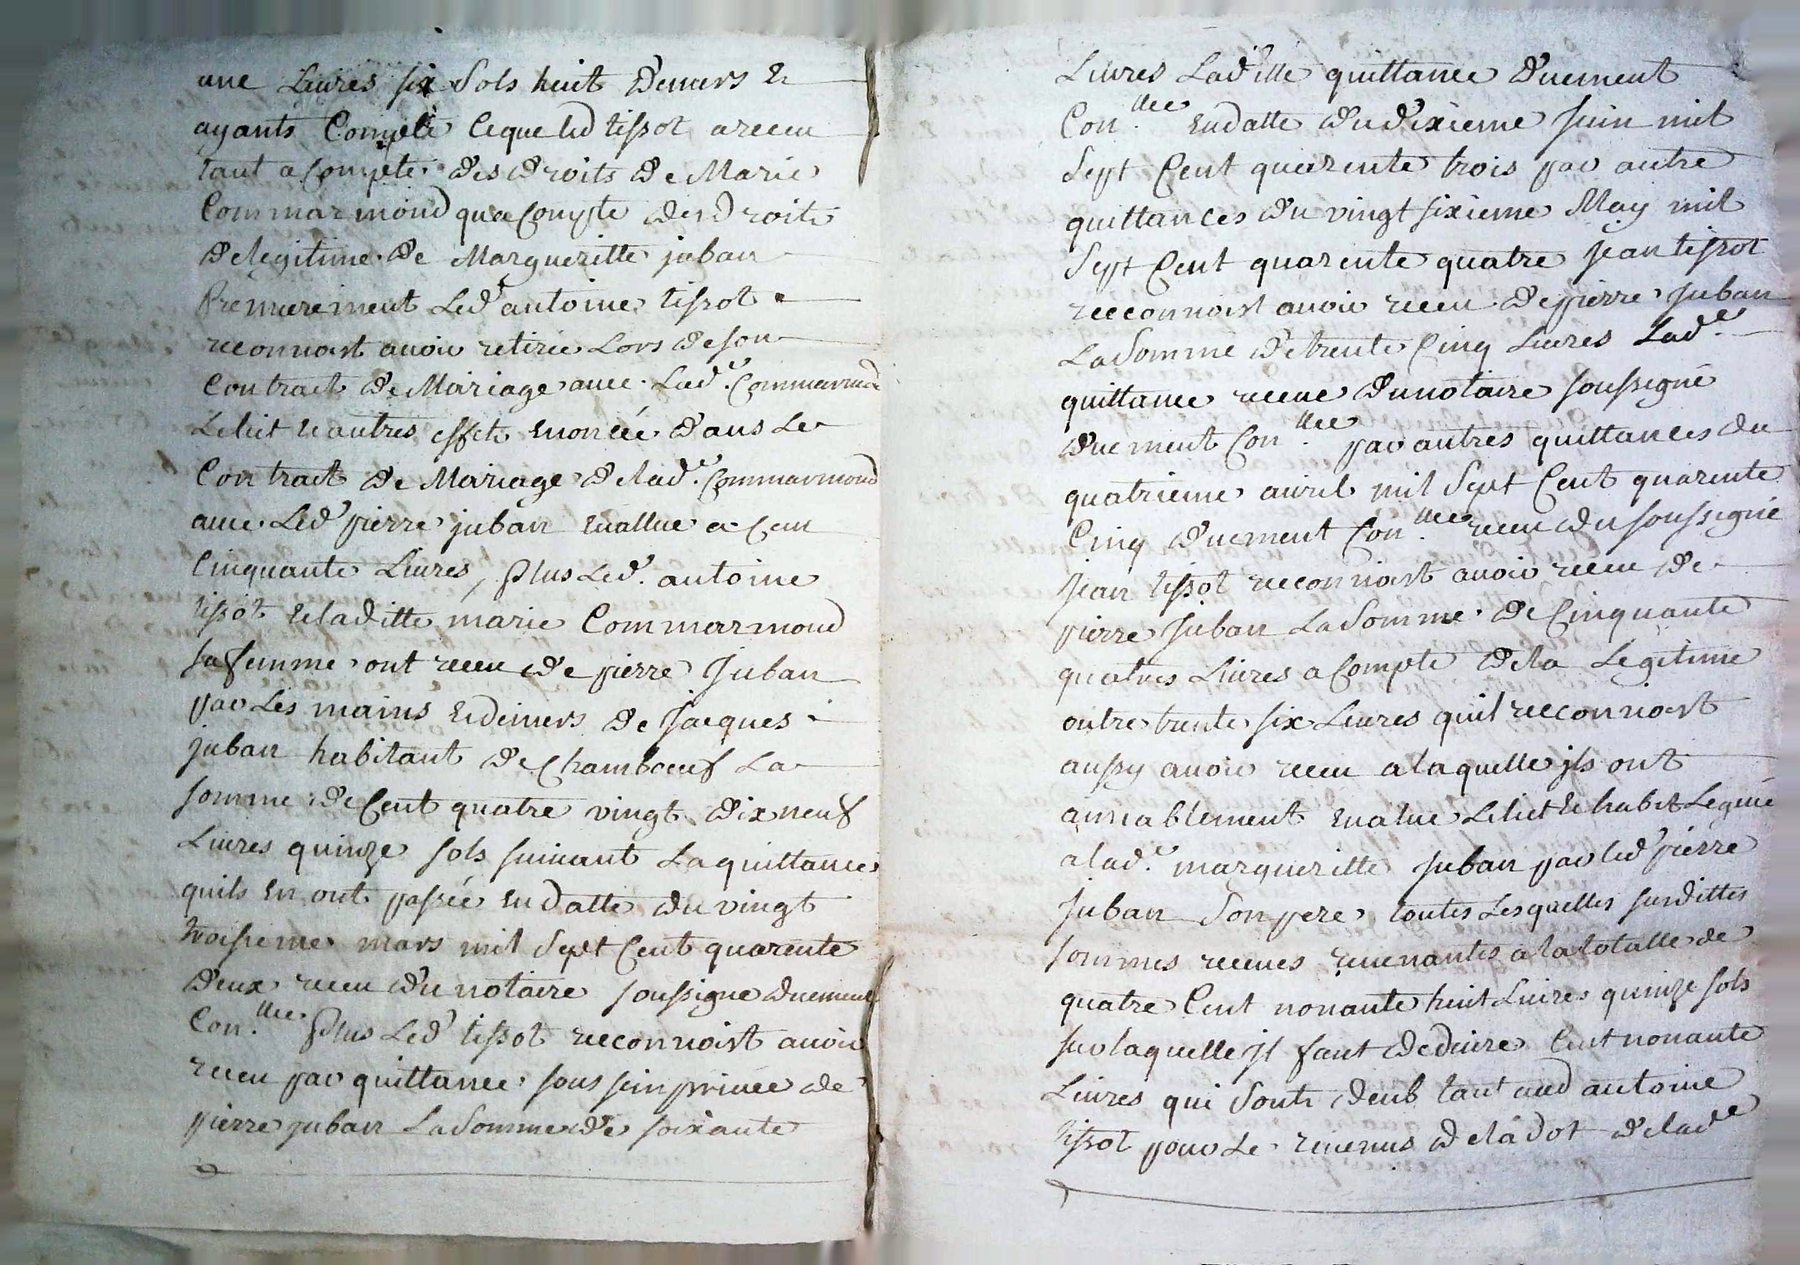 une Livres six sols huit Deniers Et
ayants Compté Ceque led tissot a receu
tant a Compte des Droits De Marie
Commarmond qua Compte des Droits
De legitime De Margueritte juban
Premierement Led antoine tissot
reconnoist avoir retirée Lors De son
Contract De Mariage avec Lad.e Commarmond
Le lict et autres effets Enoncée Dans Le
Contract De Mariage De lad.e Commarmond
avec Led pierre juban Evallue a Cent
Cinquante Livres, Plus Led. antoine
tissot et laditte marie Commarmond
sa femme ont receu De pierre Juban
par Les mains et deniers De Jacques
juban habitant De Chambœuf La
somme De Cent quatre vingt Dix neuf
Livres quinze sols suivant La quittance
quils En ont passée En Datte Du vingt
troisieme mars mil Sept Cent quarente
Deux receu Du notaire soussigne Duement
Con.llee Plus Led tissot reconnoist avoir
receu par quittance sous sein privée de
pierre juban La Somme De soixante
Livres Laditte quittance Duement
Con.llee En datte Du Dixieme Juin mil
Sept Cent quarente trois par autre
quittances Du vingt sixieme May mil
Sept Cent quarente quatre Jean tissot
reconnoist avoir receu De pierre Juban
La Somme De trente Cinq Livres Lad.e
quittance receue Du notaire soussigné
Duement Con.llee par autres quittances Du
quatrieme avril mil Sept Cent quarente
Cinq Duement Con.llee receu Du soussigné
Jean tissot reconnoist avoir receu De
pierre Juban La Somme De Cinquante
quatres Livres a Compte De la Legitime
outre trente six Livres quil reconnoist
aussy avoir receu a laquelle jls ont
amiablement Evalue Le lict Et habit Legué
a lad.e margueritte Juban par led pierre
Juban Son pere, toutes Lesquelles susdittes
sommes receues revenantes a la totalle de
quatre Cent nonante huit Livres quinze sols
sur laquelle jl faut De Duire Cent nonante
Livres qui Sont Deub tant aud antoine
tissot pour Le revenus De la Dot De lad.e